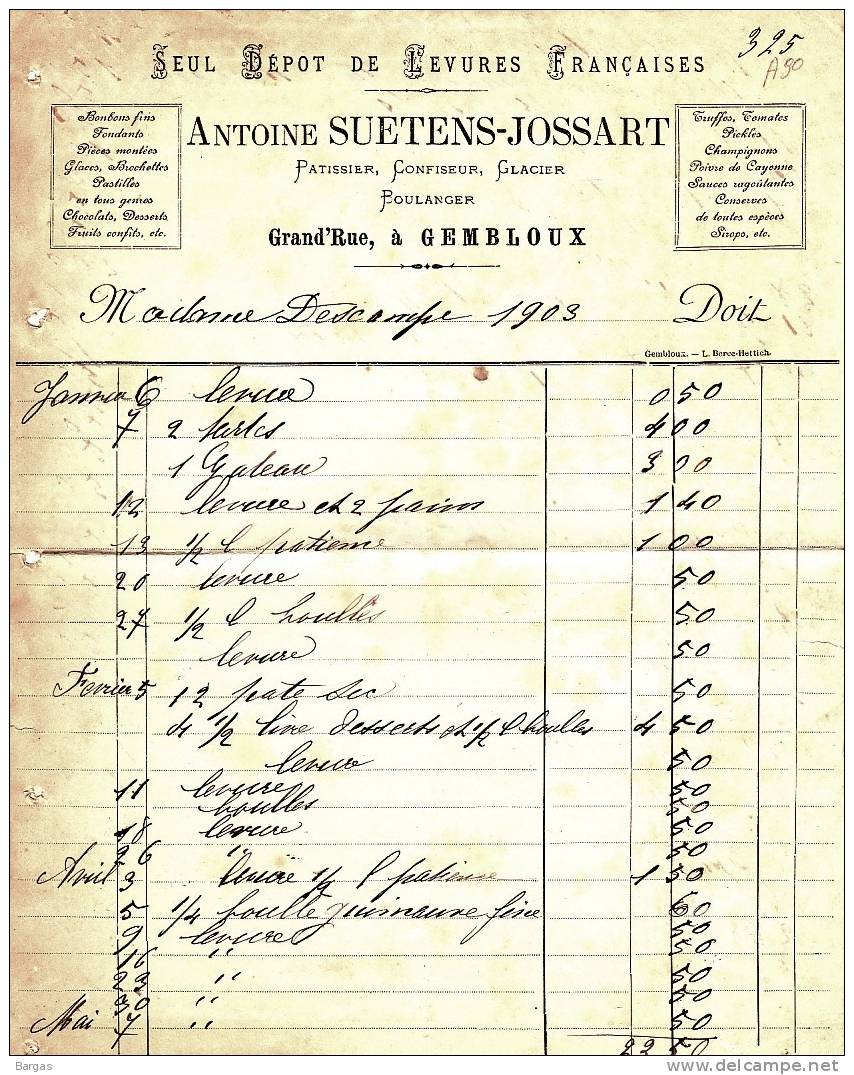 325
A90
SEUL DÉPOT DE LEVURES FRANÇAISES
Bonbons fins
Fondants
Pièces montées
Glaces, Brochettes
Pastilles
en tous genres
Chocolats, Desserts
Fruits confits, etc.
ANTOINE SUETENS-JOSSART
PATISSIER, CONFISEUR, GLACIER
BOULANGER
Grand'Rue, à GEMBLOUX
Truffes, Tomates
Pickles
Champignons
Poivre de Cayenne
Sauces ragoûtantes
Conserves
de toutes espèces
Sirops, etc.
Madame Descampe 1903 Doit
Gembloux. — L. Berce-Hettich.
Janvier 6 levure 0 50
7 2 tartes 4 00
1 Gateau 3 00
12 levure et 2 pains 1 40
13 1/2 l patiense 1 00
20 levure 50
27 1/2 l boulles 50
levure 50
Fevrier 5 12 pate sec 50
4 1/2 livre desserts et 1/2 l boulles 4 50
levure 50
11 levure 50
boulles 50
18 levure 50
26 " 50
Avril 3 levure 1/2 l patiense 1 50
5 1/4 boulle guimauve fine 60
9 levure 50
16 " 50
23 " 50
30 " 50
Mai 7 " 50
22 50
Bargas
www.delcampe.net